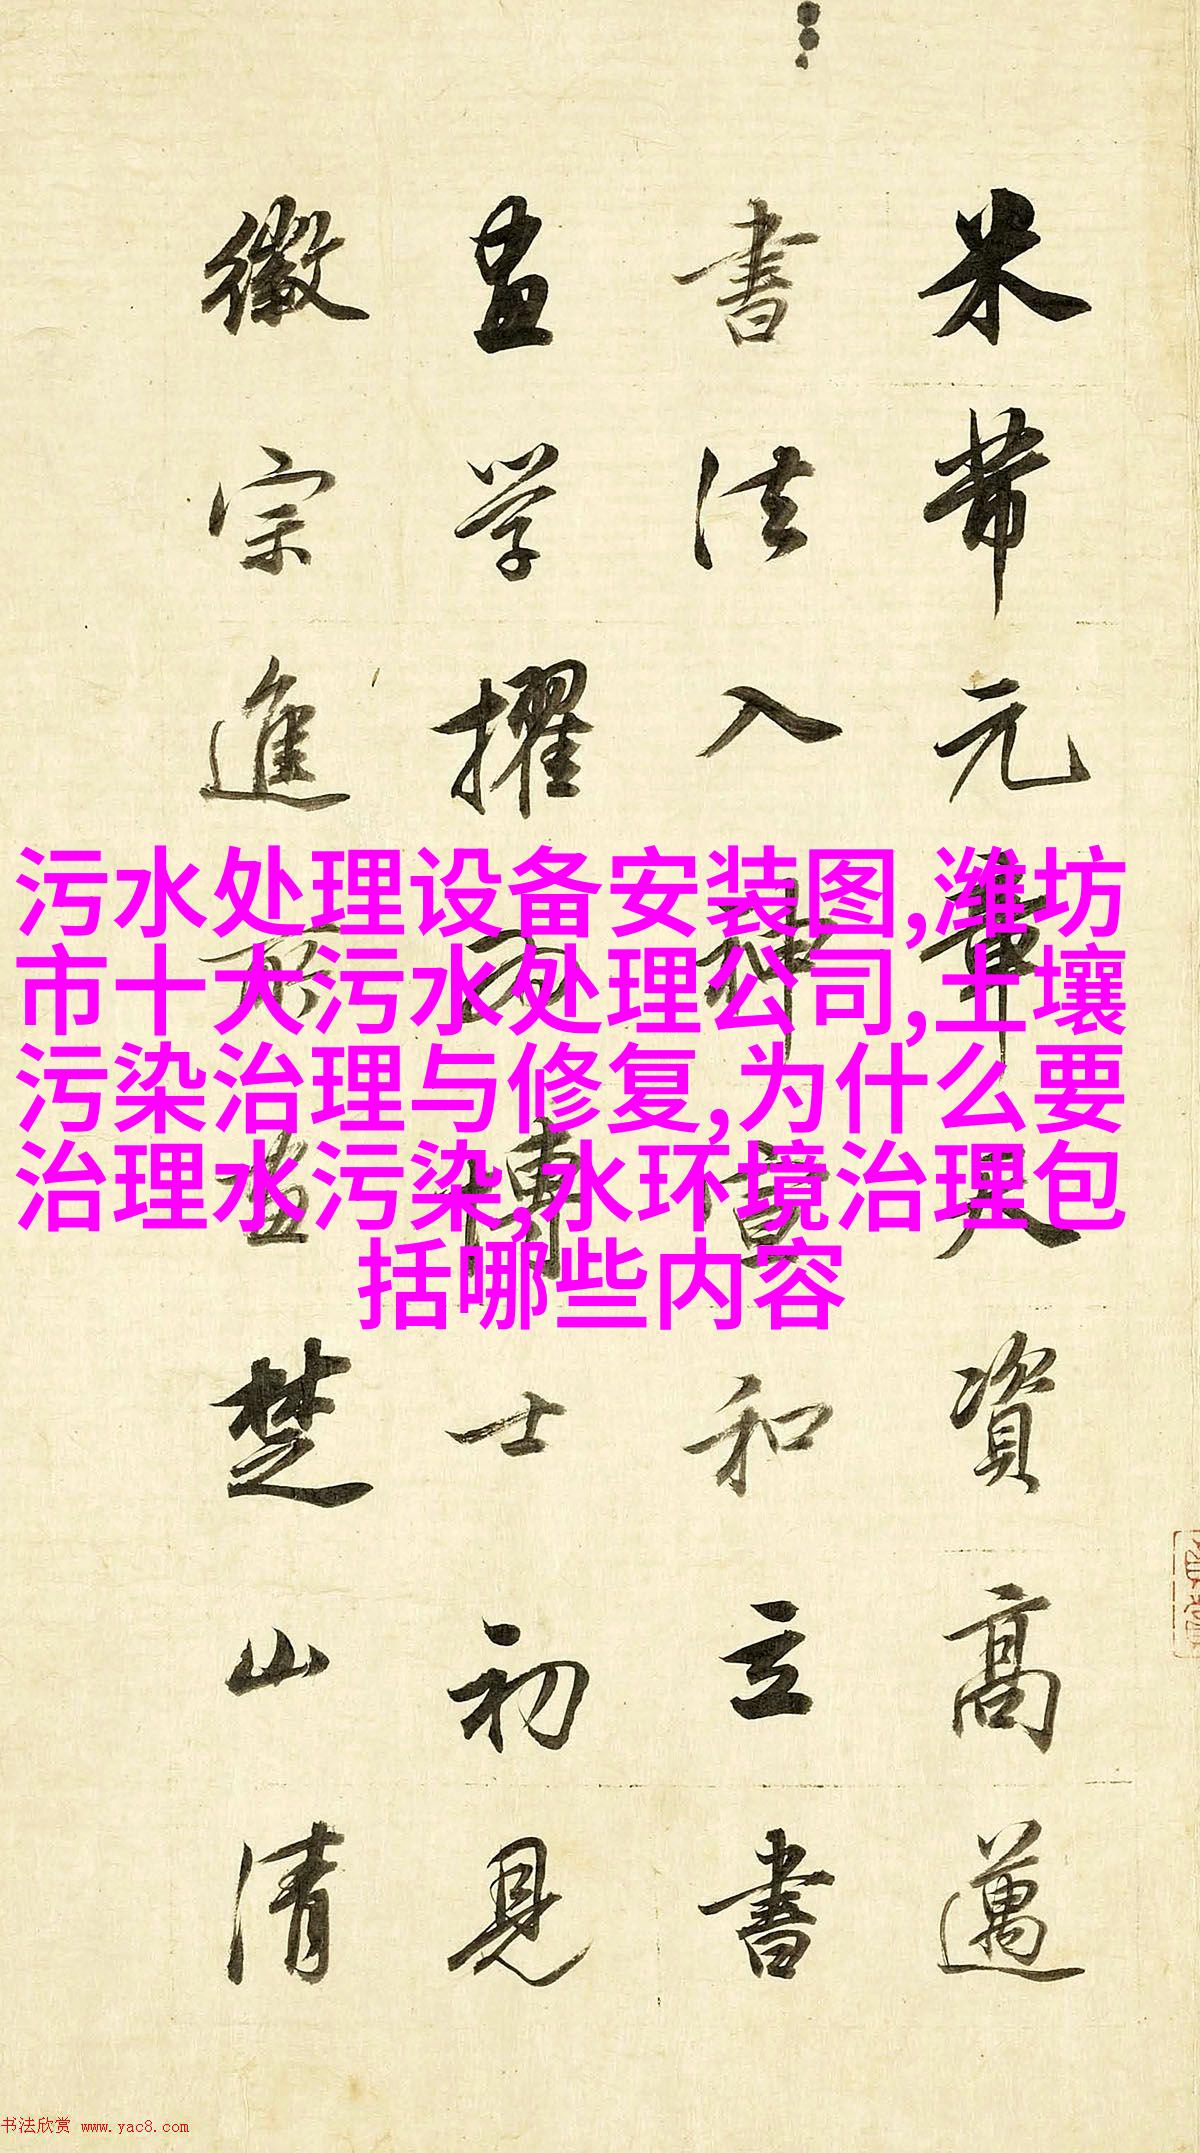 米芾元章天資高邁
書法入神宣和立書
畫學擢為博士初見
徽宗進所畫楚山清
污水处理设备安装图,潍坊
市十大污水处理公司,土壤
污染治理与修复,为什么要
治理水污染,水环境治理包
括哪些内容
书法欣赏 www.yac8.com